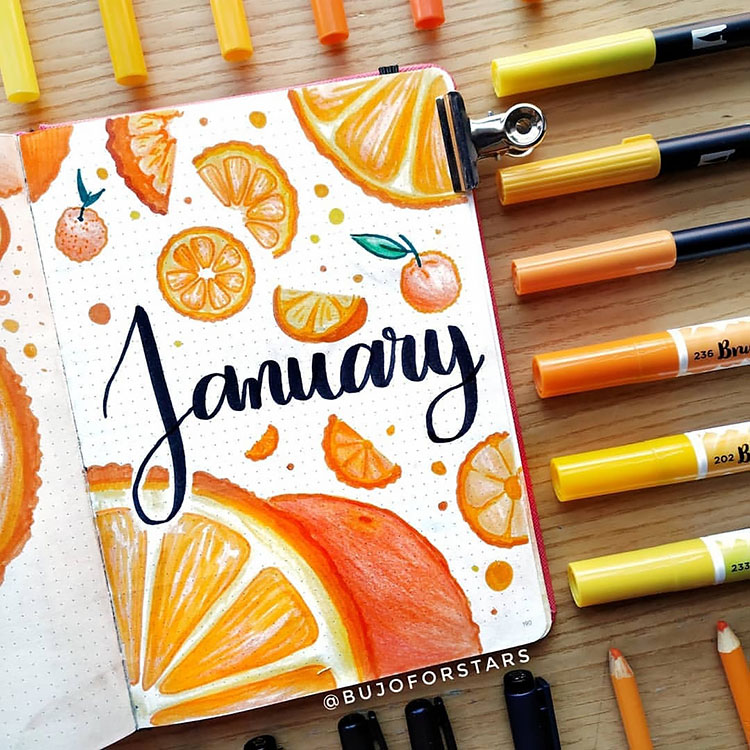 January
236 Bru
202 B
233
190
@BUJOFORSTARS